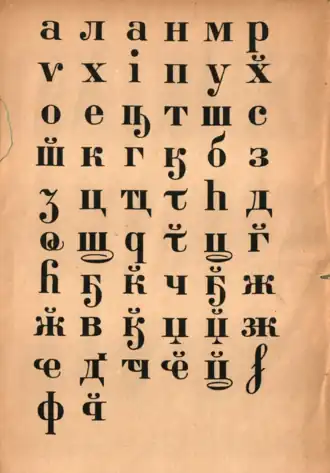 а л а н м р
ѵ х і п у х̈
о е ҧ т ш с
ш̈ к г ӄ б з
ӡ ц ҵ ꚍ һ д
ҩ q ꚍ̈ г̈
ꚕ ҕ к̈ ч ҕ̈ ж
ӝ в ӄ̈ џ џ̈ зж
ҽ ҽ̈
ф q̈